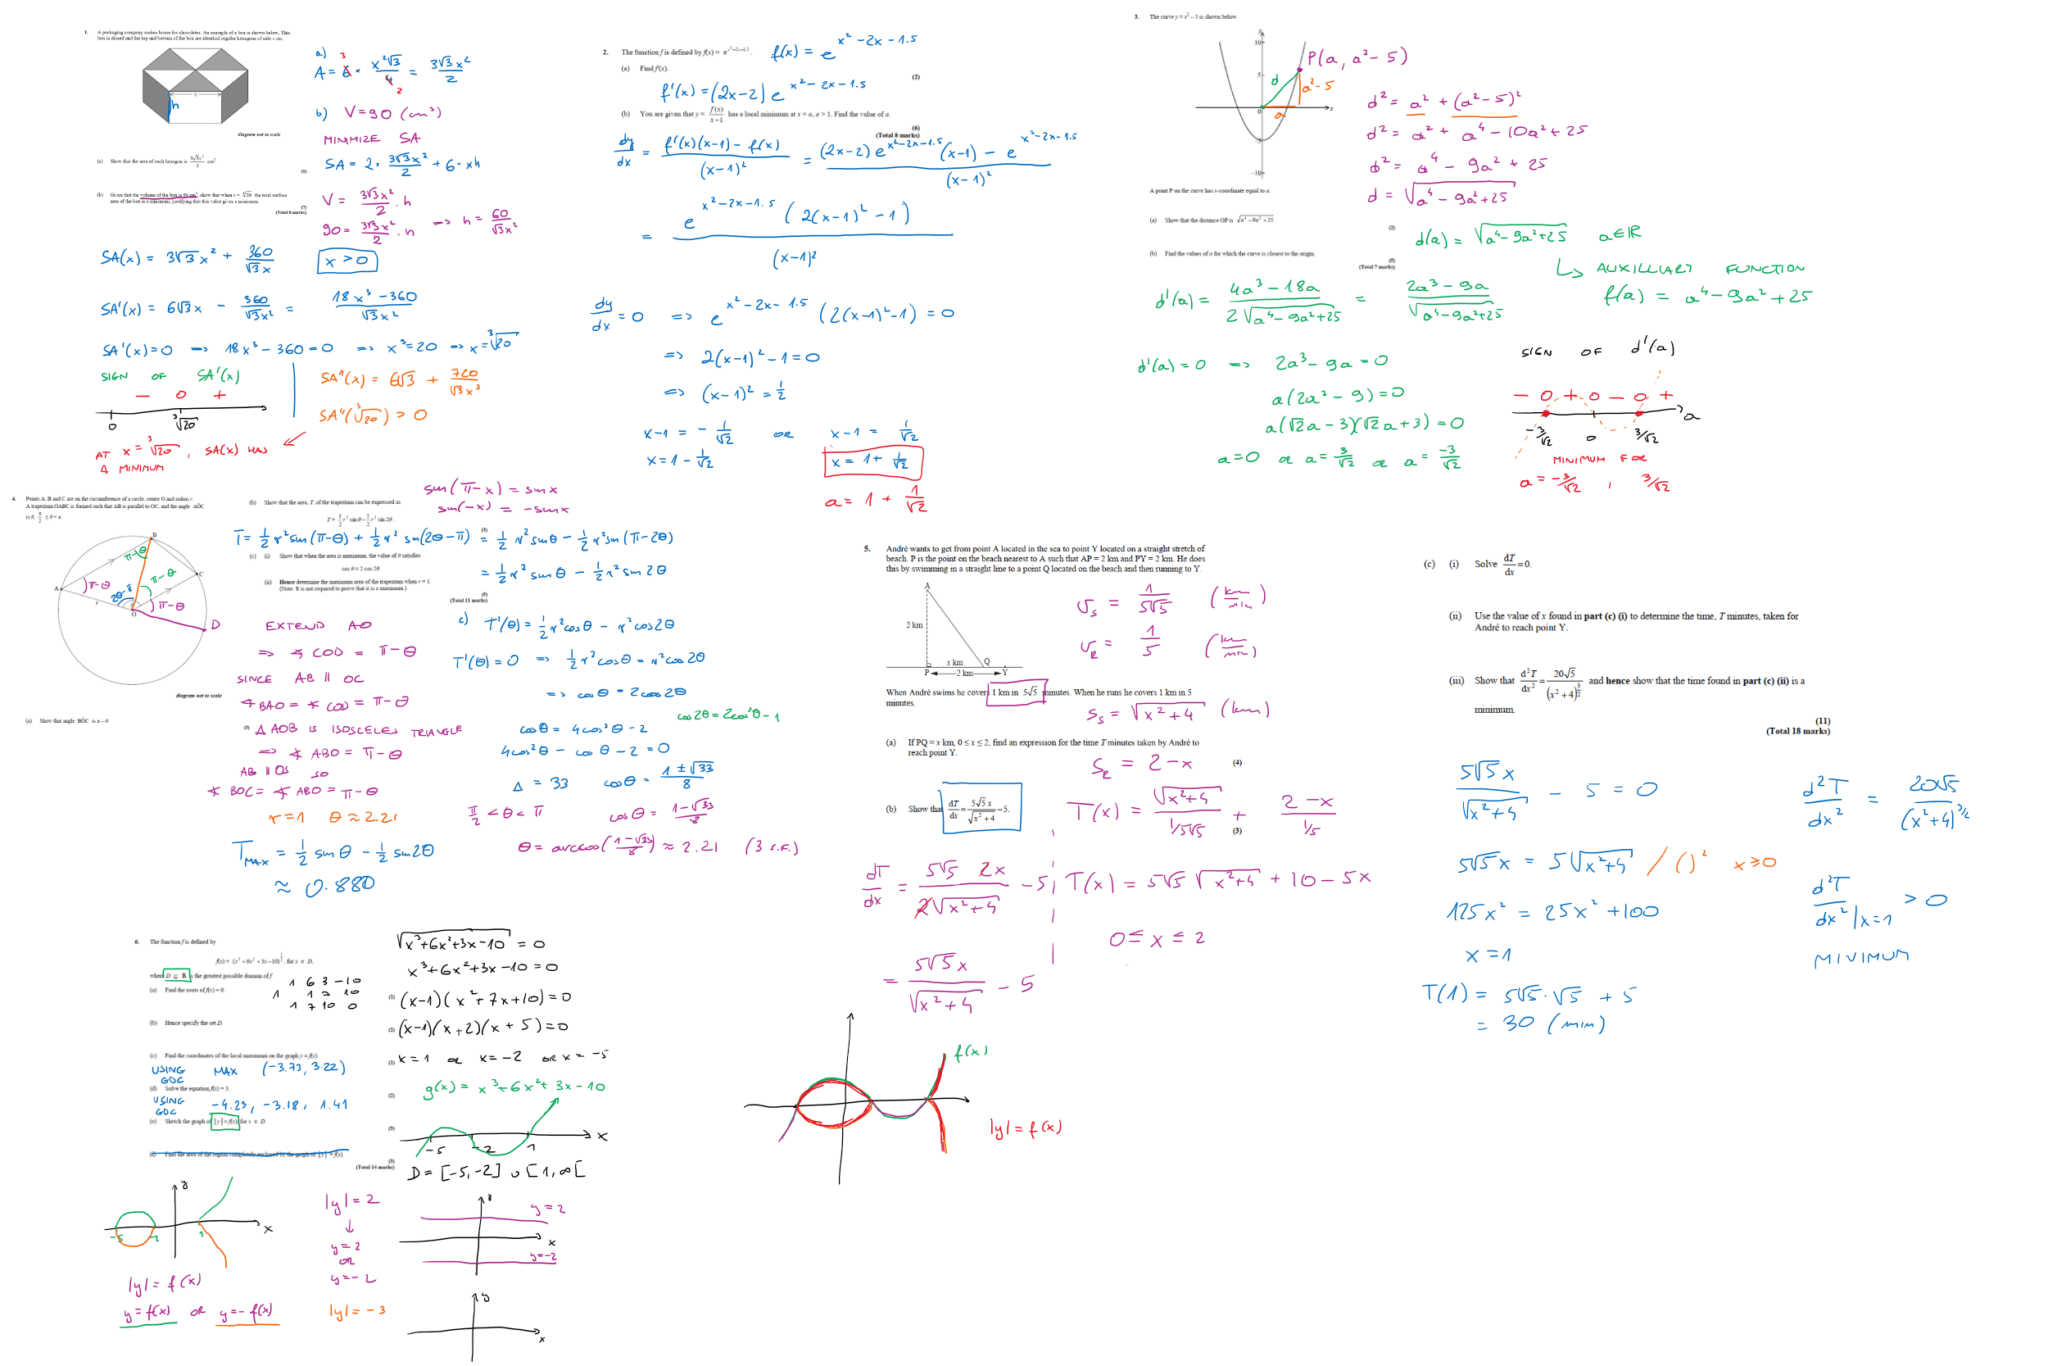 1. A packaging company makes boxes for chocolates. An example of a box is shown below. This
box is closed and the top and bottom of the box are identical regular hexagons of side x cm.
x
h
diagram not to scale
(a) Show that the area of each hexagon is 3√3x²/2 cm².
(b) Given that the volume of the box is 90 cm³, show that when x = ∛20 the total surface
area of the box is a minimum, justifying that this value gives a minimum.
(7)
(Total 8 marks)
a)
A = 6 · x²√3/4 = 3√3x²/2
b) V = 90 (cm³)
MINIMIZE SA
SA = 2 · 3√3x²/2 + 6 · xh
V = 3√3x²/2 · h
90 = 3√3x²/2 · h => h = 60/√3x²
SA(x) = 3√3x² + 360/√3x x > 0
SA'(x) = 6√3x - 360/√3x² = 18x³ - 360/√3x²
SA'(x) = 0 => 18x³ - 360 = 0 => x³ = 20 => x = ∛20
SIGN OF SA'(x)
- 0 +
0 ∛20
SA''(x) = 6√3 + 720/√3x³
SA''(∛20) > 0
AT x = ∛20, SA(x) HAS
A MINIMUM
2. The function f is defined by f(x) = e^(x²-2x-1.5). f(x) = e^(x²-2x-1.5)
(a) Find f'(x).
(2)
f'(x) = (2x-2) e^(x²-2x-1.5)
(b) You are given that y = f(x)/(x-1) has a local minimum at x = a, a > 1. Find the value of a.
(6)
(Total 8 marks)
dy/dx = f'(x)(x-1) - f(x)/(x-1)² = (2x-2) e^(x²-2x-1.5) (x-1) - e^(x²-2x-1.5)/(x-1)²
= e^(x²-2x-1.5) (2(x-1)² - 1)/(x-1)²
dy/dx = 0 => e^(x²-2x-1.5) (2(x-1)² - 1) = 0
=> 2(x-1)² - 1 = 0
=> (x-1)² = 1/2
x-1 = -1/√2 OR x-1 = 1/√2
x = 1 - 1/√2 x = 1 + 1/√2
a = 1 + 1/√2
3. The curve y = x² - 5 is shown below.
P(a, a² - 5)
d
a² - 5
a
A point P on the curve has x-coordinate equal to a.
(a) Show that the distance OP is √(a⁴ - 9a² + 25).
(2)
(b) Find the values of a for which the curve is closest to the origin.
(5)
(Total 7 marks)
d² = a² + (a² - 5)²
d² = a² + a⁴ - 10a² + 25
d² = a⁴ - 9a² + 25
d = √(a⁴ - 9a² + 25)
d(a) = √(a⁴ - 9a² + 25) a∈ℝ
↳ AUXILLIARY FUNCTION
f(a) = a⁴ - 9a² + 25
d'(a) = 4a³ - 18a/2√(a⁴ - 9a² + 25) = 2a³ - 9a/√(a⁴ - 9a² + 25)
d'(a) = 0 => 2a³ - 9a = 0
a(2a² - 9) = 0
a(√2a - 3)(√2a + 3) = 0
a = 0 or a = 3/√2 or a = -3/√2
SIGN OF d'(a)
- 0 + 0 - 0 +
-3/√2 0 3/√2 a
MINIMUM FOR
a = -3/√2, 3/√2
4. Points A, B and C are on the circumference of a circle, centre O and radius r.
A trapezium OABC is formed such that AB is parallel to OC, and the angle AÔC
is θ, π/2 ≤ θ < π.
diagram not to scale
(a) Show that angle BÔC is π - θ.
(b) Show that the area, T, of the trapezium can be expressed as
T = 1/2 r² sin θ - 1/2 r² sin 2θ.
(c) (i) Show that when the area is maximum, the value of θ satisfies
cos θ = 2 cos 2θ
(ii) Hence determine the maximum area of the trapezium when r = 1.
(Note: It is not required to prove that it is a maximum.)
(Total 11 marks)
sin(π - x) = sinx
sin(-x) = -sinx
T = 1/2 r² sin(π-θ) + 1/2 r² sin(2θ-π) = 1/2 r² sinθ - 1/2 r² sin(π-2θ)
= 1/2 r² sinθ - 1/2 r² sin2θ
EXTEND AO
=> ∢ COD = π - θ
SINCE AB ∥ OC
∢ BAO = ∢ COD = π - θ
△ AOB IS ISOSCELES TRIANGLE
=> ∢ ABO = π - θ
AB ∥ OS so
∢ BOC = ∢ ABO = π - θ
r = 1 θ ≈ 2.21
T MAX = 1/2 sinθ - 1/2 sin2θ
≈ 0.880
c) T'(θ) = 1/2 r² cosθ - r² cos2θ
T'(θ) = 0 => 1/2 r² cosθ = r² cos2θ
=> cosθ = 2cos2θ
cos2θ = 2cos²θ - 1
cosθ = 4cos²θ - 2
4cos²θ - cosθ - 2 = 0
Δ = 33 cosθ = 1 ± √33/8
π/2 < θ < π cosθ = 1 - √33/8
θ = arccos(1 - √33/8) ≈ 2.21 (3 s.f.)
5. André wants to get from point A located in the sea to point Y located on a straight stretch of
beach. P is the point on the beach nearest to A such that AP = 2 km and PY = 2 km. He does
this by swimming in a straight line to a point Q located on the beach and then running to Y.
A
2 km
x km Q
P 2 km Y
When André swims he covers 1 km in 5√5 minutes. When he runs he covers 1 km in 5
minutes.
(a) If PQ = x km, 0 ≤ x ≤ 2, find an expression for the time T minutes taken by André to
reach point Y.
(4)
(b) Show that dT/dx = 5√5 x/√(x² + 4) - 5.
(3)
v_s = 1/5√5 (km/min)
v_R = 1/5 (km/min)
S_s = √(x² + 4) (km)
S_R = 2 - x
T(x) = √(x² + 4)/(1/5√5) + 2 - x/(1/5)
T(x) = 5√5 √(x² + 4) + 10 - 5x
0 ≤ x ≤ 2
dT/dx = 5√5 2x/2√(x² + 4) - 5
= 5√5 x/√(x² + 4) - 5
(c) (i) Solve dT/dx = 0.
(ii) Use the value of x found in part (c) (i) to determine the time, T minutes, taken for
André to reach point Y.
(iii) Show that d²T/dx² = 20√5/(x² + 4)^(3/2) and hence show that the time found in part (c) (ii) is a
minimum.
(11)
(Total 18 marks)
5√5x/√(x² + 4) - 5 = 0
5√5x = 5√(x² + 4) /()² x ≥ 0
125x² = 25x² + 100
x = 1
T(1) = 5√5 · √5 + 5
= 30 (min)
d²T/dx² = 20√5/(x² + 4)^(3/2)
d²T/dx² |x=1 > 0
MINIMUM
6. The function f is defined by
f(x) = (x³ + 6x² + 3x - 10)^(1/2), for x ∈ D,
where D ⊆ ℝ is the greatest possible domain of f.
(a) Find the roots of f(x) = 0.
(b) Hence specify the set D.
(c) Find the coordinates of the local maximum on the graph y = f(x).
USING GDC MAX (-3.73, 3.22)
(d) Solve the equation f(x) = 3.
USING GDC -4.23, -3.18, 1.41
(e) Sketch the graph of |y| = f(x), for x ∈ D.
(f) Find the area of the region completely enclosed by the graph of |y| = f(x).
(Total 14 marks)
1 6 3 -10
1 1 7 10
1 7 10 0
√(x³ + 6x² + 3x - 10) = 0
x³ + 6x² + 3x - 10 = 0
(x-1)(x² + 7x + 10) = 0
(x-1)(x+2)(x+5) = 0
x = 1 or x = -2 or x = -5
g(x) = x³ + 6x² + 3x - 10
-5 -2 1 x
D = [-5, -2] ∪ [1, ∞[
y
-5 -2 1 x
|y| = f(x)
y = f(x) OR y = -f(x)
|y| = 2
↓
y = 2
OR
y = -2
|y| = -3
y
y = 2
x
y = -2
y
x
f(x)
|y| = f(x)